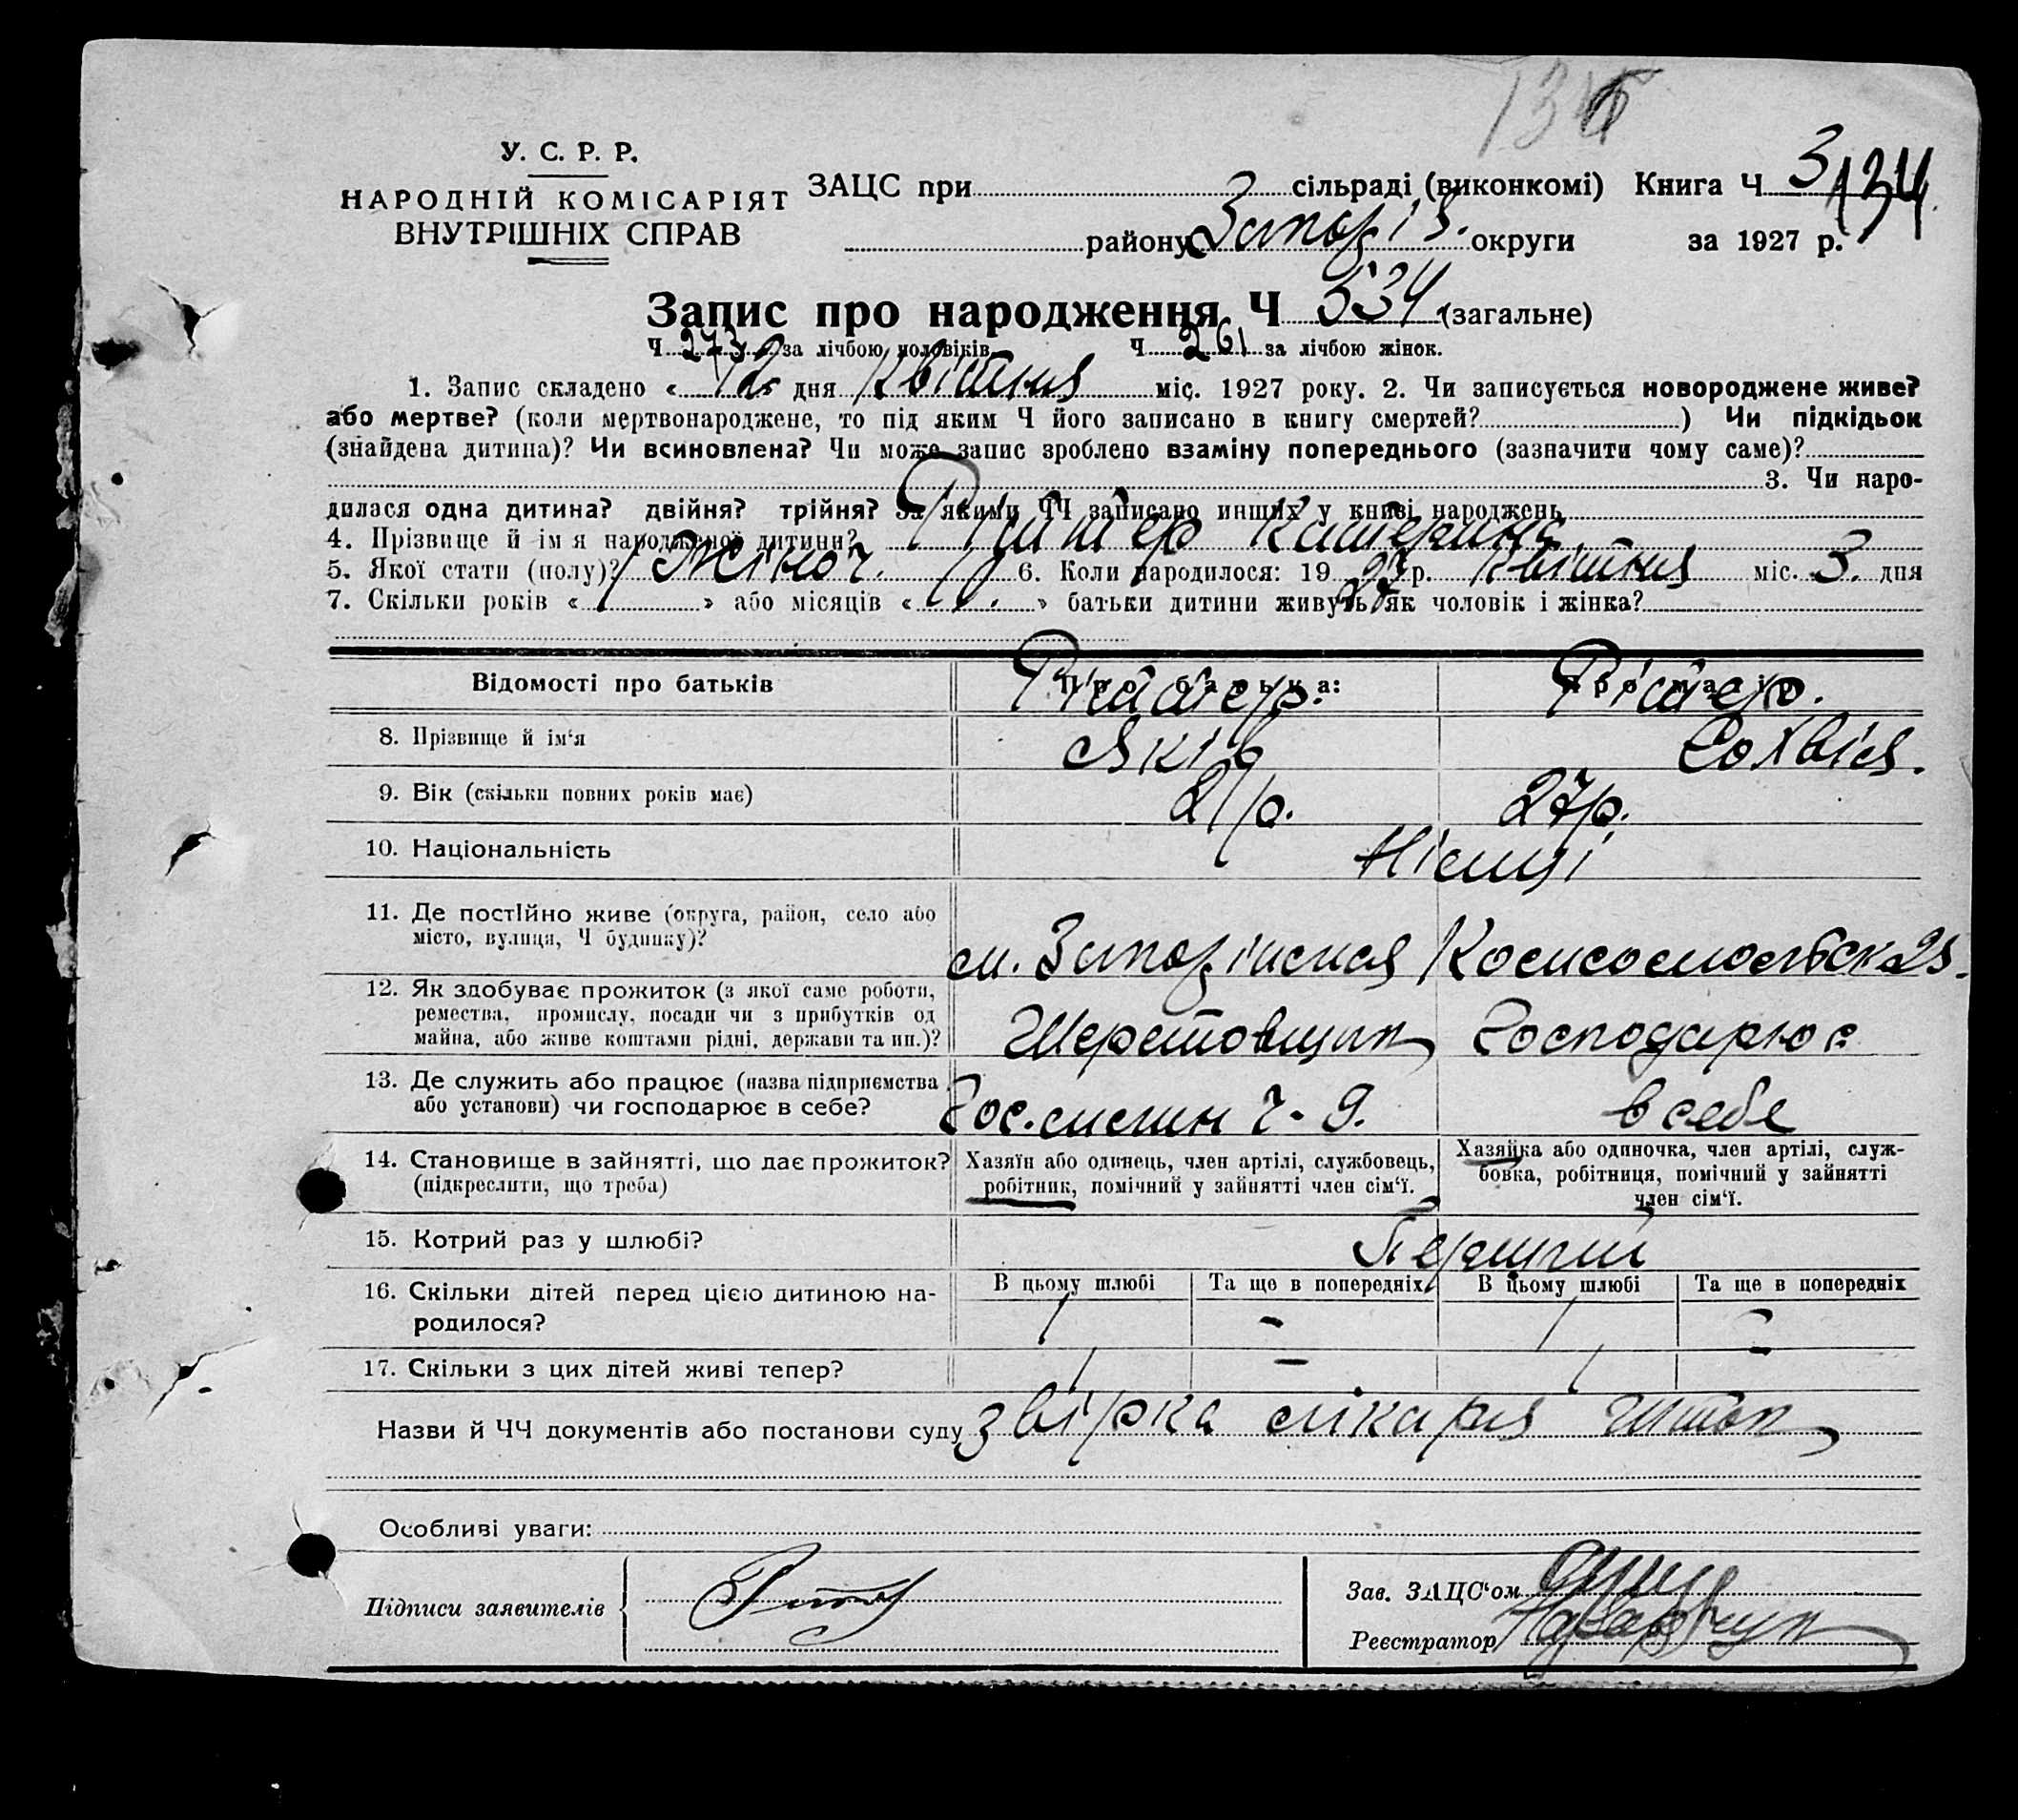 134
У. С. Р. Р.
НАРОДНІЙ КОМІСАРІЯТ
ВНУТРІШНІХ СПРАВ
ЗАЦС при сільраді (виконкомі) Книга Ч 3 134
району Запоріз. округи за 1927 р.
Запис про народження Ч 534 (загальне)
Ч 273 за лічбою чоловіків Ч 261 за лічбою жінок.
1. Запис складено « 12 » дня Квітня міс. 1927 року. 2. Чи записується новороджене живе?
або мертве? (коли мертвонароджене, то під яким Ч його записано в книгу смертей? ) Чи підкідьок
(знайдена дитина)? Чи всиновлена? Чи може запис зроблено взаміну попереднього (зазначити чому саме)?
3. Чи наро-
дилася одна дитина? двійня? трійня? За якими ЧЧ записано инших у книзі народжень
4. Прізвище й ім я народженої дитини? Ріттер Катерина
5. Якої стати (полу)? Жіноч. 6. Коли народилося: 19 27 р. Квітня міс. 3. дня
7. Скільки років « » або місяців « » батьки дитини живуть як чоловік і жінка?
Відомості про батьків Про батька: Про матір
8. Прізвище й ім‘я Ріттер. Яків Ріттер. Софвія.
9. Вік (скільки повних років має) 21 р. 27 р.
10. Національність Німці
11. Де постійно живе (округа, район, село або
місто, вулиця, Ч будинку)? м. Запоріжжя Комсомольск 25.
12. Як здобуває прожиток (з якої саме роботи,
ремества, промислу, посади чи з прибутків од
майна, або живе коштами рідні, держави та ин.)? Шеретовщик Господарює
13. Де служить або працює (назва підприємства
або установи) чи господарює в себе? Гос.млин ч-9. в себе
14. Становище в зайнятті, що дає прожиток?
(підкреслити, що треба)
Хазяїн або одинець, член артілі, службовець,
робітник, помічний у зайнятті член сім‘ї.
Хазяйка або одиночка, член артілі, служ-
бовка, робітниця, помічний у зайнятті
член сім‘ї.
15. Котрий раз у шлюбі? Перший
16. Скільки дітей перед цією дитиною на-
родилося?
В цьому шлюбі Та ще в попередніх В цьому шлюбі Та ще в попередніх
1 - 1 -
17. Скільки з цих дітей живі тепер? 1 - 1 -
Назви й ЧЧ документів або постанови суду звірка лікаря
Особливі уваги:
Підписи заявителів
Зав. ЗАЦС‘ом
Реєстратор